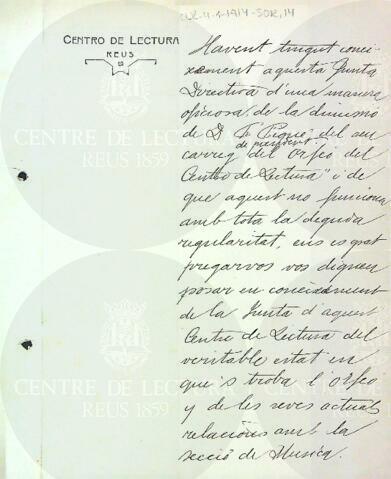 CENTRO DE LECTURA
REUS
Havent tingut conei-
xement aquesta Junta
Directiva d'una manera
oficiosa, de la dimissió
de D. Piqué, del seu
de president
carreg del Orfeó del
"Centro de Lectura" i de
que aquest no funciona
amb tota la deguda
regularitat, ens es grat
pregarvos vos digneu
posar en coneixement
de la Junta d'aquest
Centro de Lectura del
veritable estat en
que's troba l'Orfeó
y de les seves actuals
relacions amb la
secció de Musica.
CENTRE DE LECTURA
REUS 1859
CENTRE DE LECTURA
REUS 1859